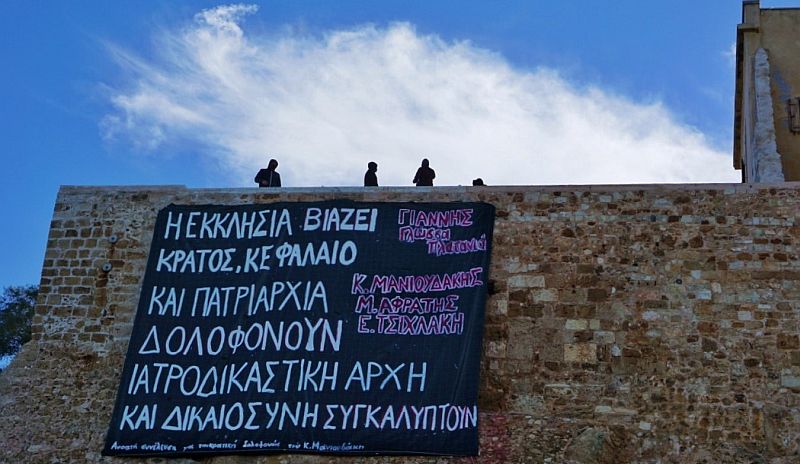 Η ΕΚΚΛΗΣΙΑ ΒΙΑΖΕΙ
ΚΡΑΤΟΣ, ΚΕΦΑΛΑΙΟ
ΚΑΙ ΠΑΤΡΙΑΡΧΙΑ
ΔΟΛΟΦΟΝΟΥΝ
ΙΑΤΡΟΔΙΚΑΣΤΙΚΗ ΑΡΧΗ
ΚΑΙ ΔΙΚΑΙΟΣΥΝΗ ΣΥΓΚΑΛΥΠΤΟΥΝ
ΓΙΑΝΝΗΣ
Γλωσσα
Πλατανιά
Κ. ΜΑΝΙΟΥΔΑΚΗΣ
Μ. ΑΦΡΑΤΗΣ
Ε. ΤΣΙΧΛΑΚΗ
Ανοιχτή συνέλευση για την κρατική δολοφονία του Κ. Μανιουδάκη